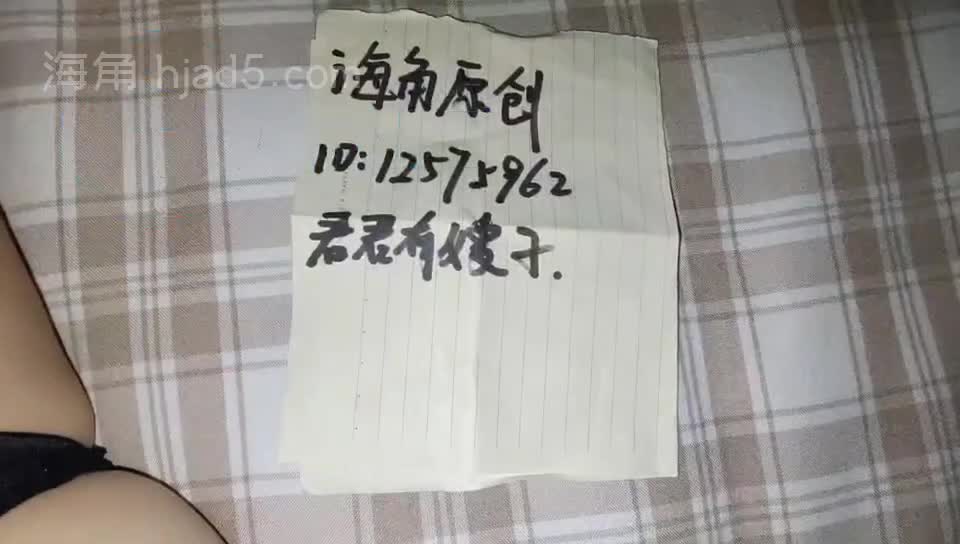 海角 hjad5.co
海角原创
ID:12575962
君君有嫂子.